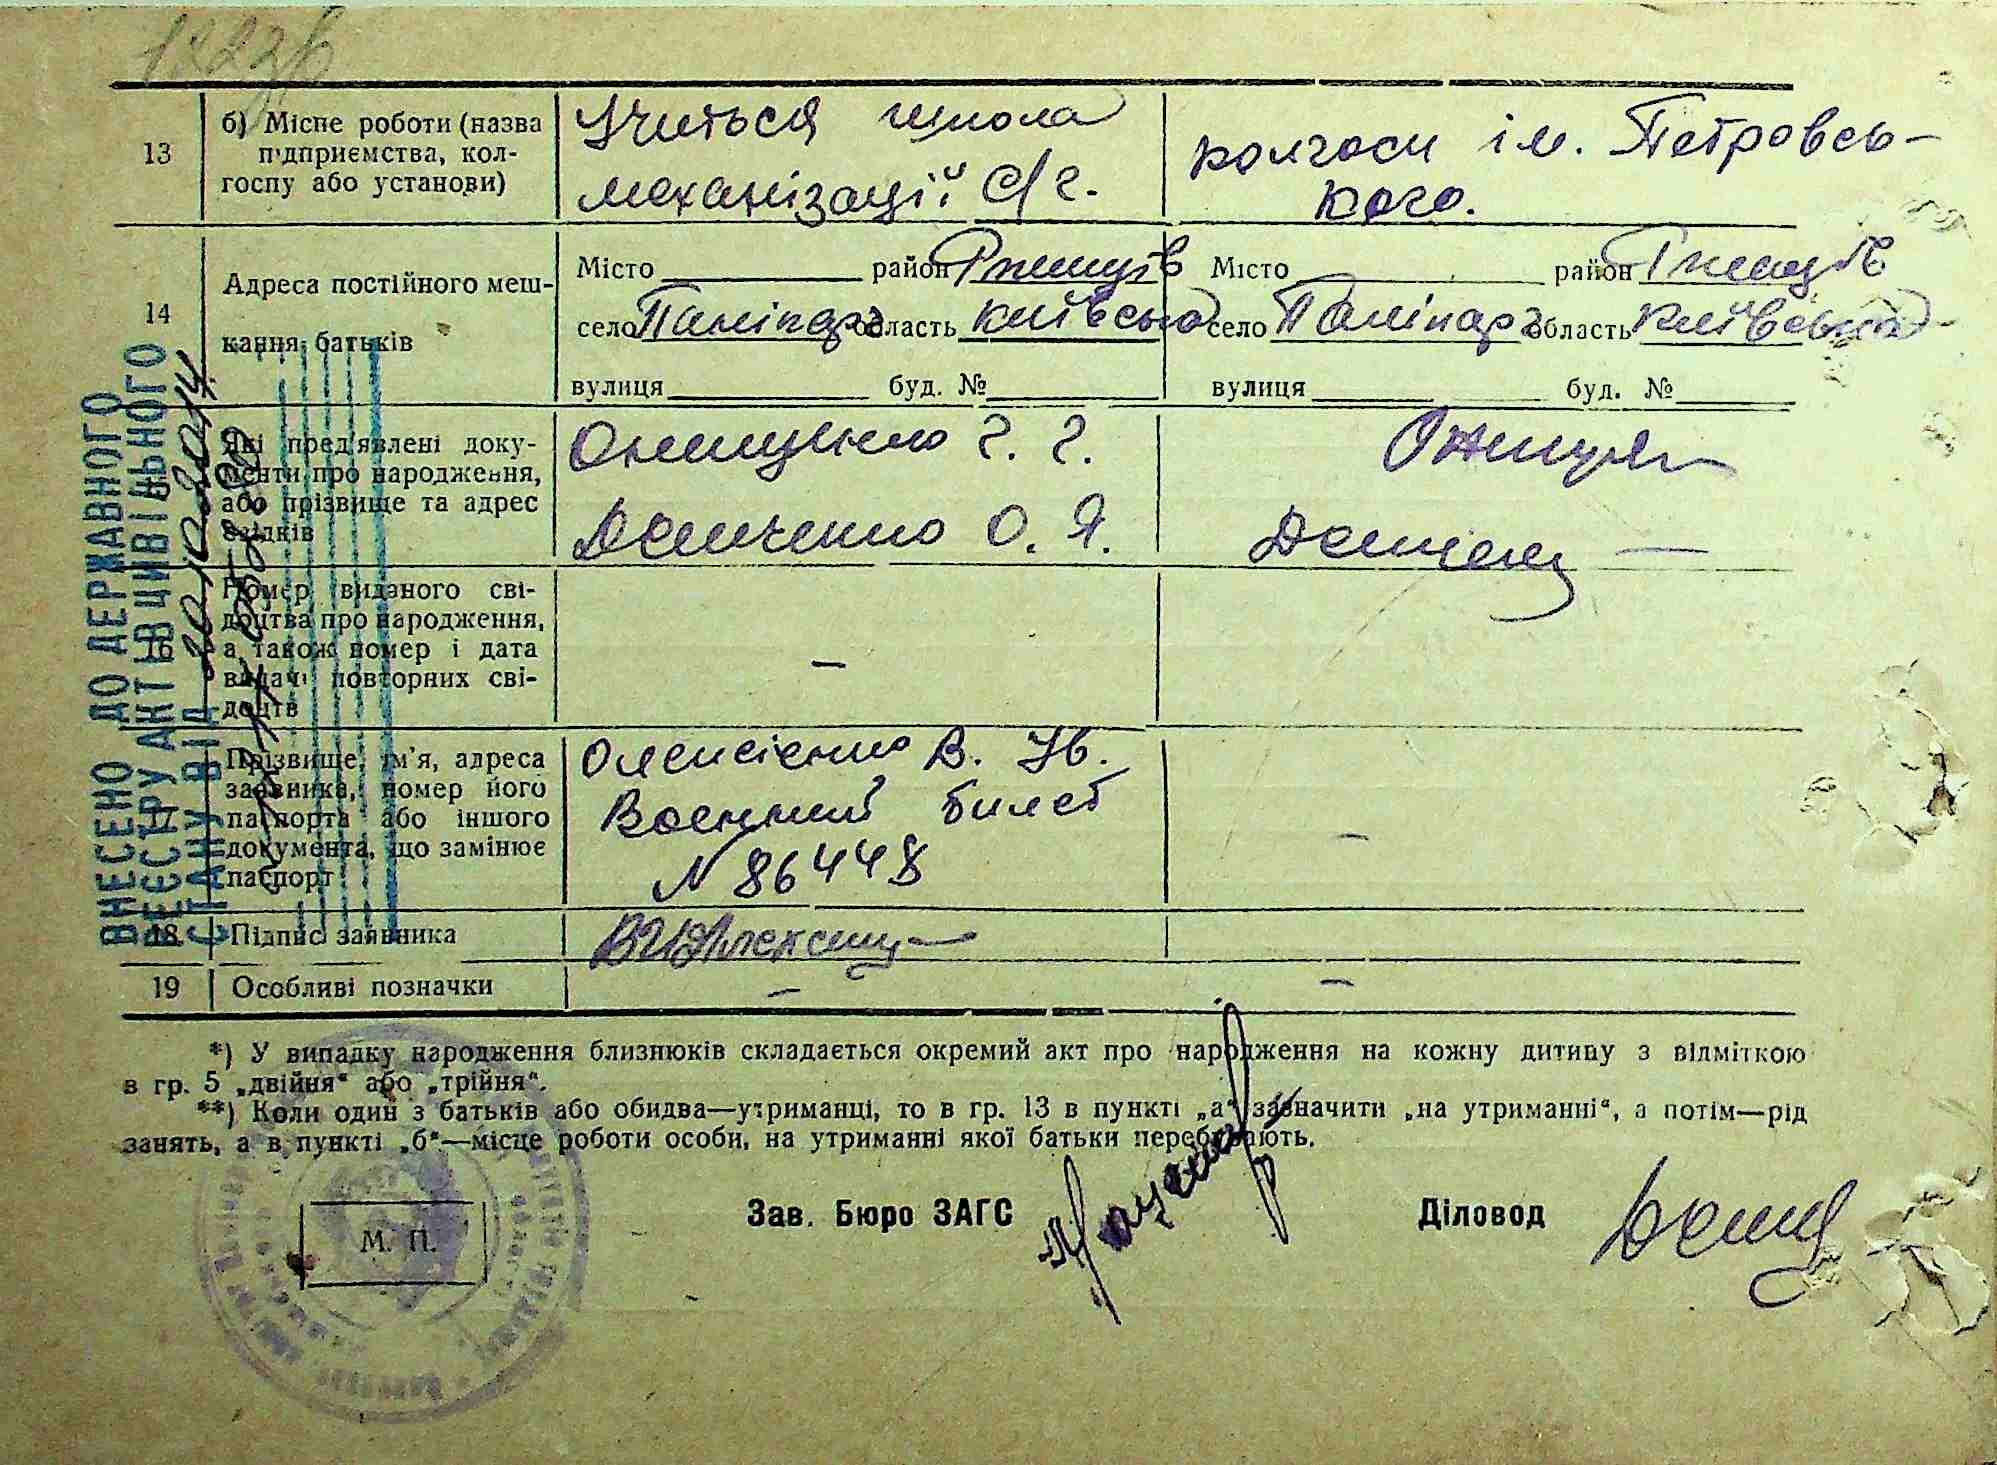 13
б) Місце роботи (назва
підприємства, кол-
госпу або установи)
Учиться школа
механізації с/г.
колгосп ім. Петровсь-
кого.
14
Адреса постійного меш-
кання батьків
Місто район Ржищів
село Паніпарт область Київська
вулиця буд. №
Місто район Ржищів
село Паліпарт область Київська
вулиця буд. №
Які пред'явлені доку-
менти про народження,
або прізвище та адрес
свідків
Онищенко Г. Г.
Демченко О. Я.
16
Номер виданого сві-
доцтва про народження,
а також номер і дата
видачі повторних сві-
доцтв
–
17
Прізвище, ім'я, адреса
заявника, номер його
паспорта або іншого
документа, що замінює
паспорт
Олексієнко В. Ів.
Военний билет
N 86448
–
18
Підпис заявника
19
Особливі позначки
–
–
*) У випадку народження близнюків складається окремий акт про народження на кожну дитину з відміткою
в гр. 5 „двійня“ або „трійня“.
**) Коли один з батьків або обидва—утриманці, то в гр. 13 в пункті „а“ зазначити „на утриманні“, а потім—рід
занять, а в пункті „б“—місце роботи особи, на утриманні якої батьки перебувають.
М. П.
Зав. Бюро ЗАГС
Діловод
ВНЕСЕНО ДО ДЕРЖАВНОГО
РЕЄСТРУ АКТІВ ЦИВІЛЬНОГО
СТАНУ ВІД 20.10.2014